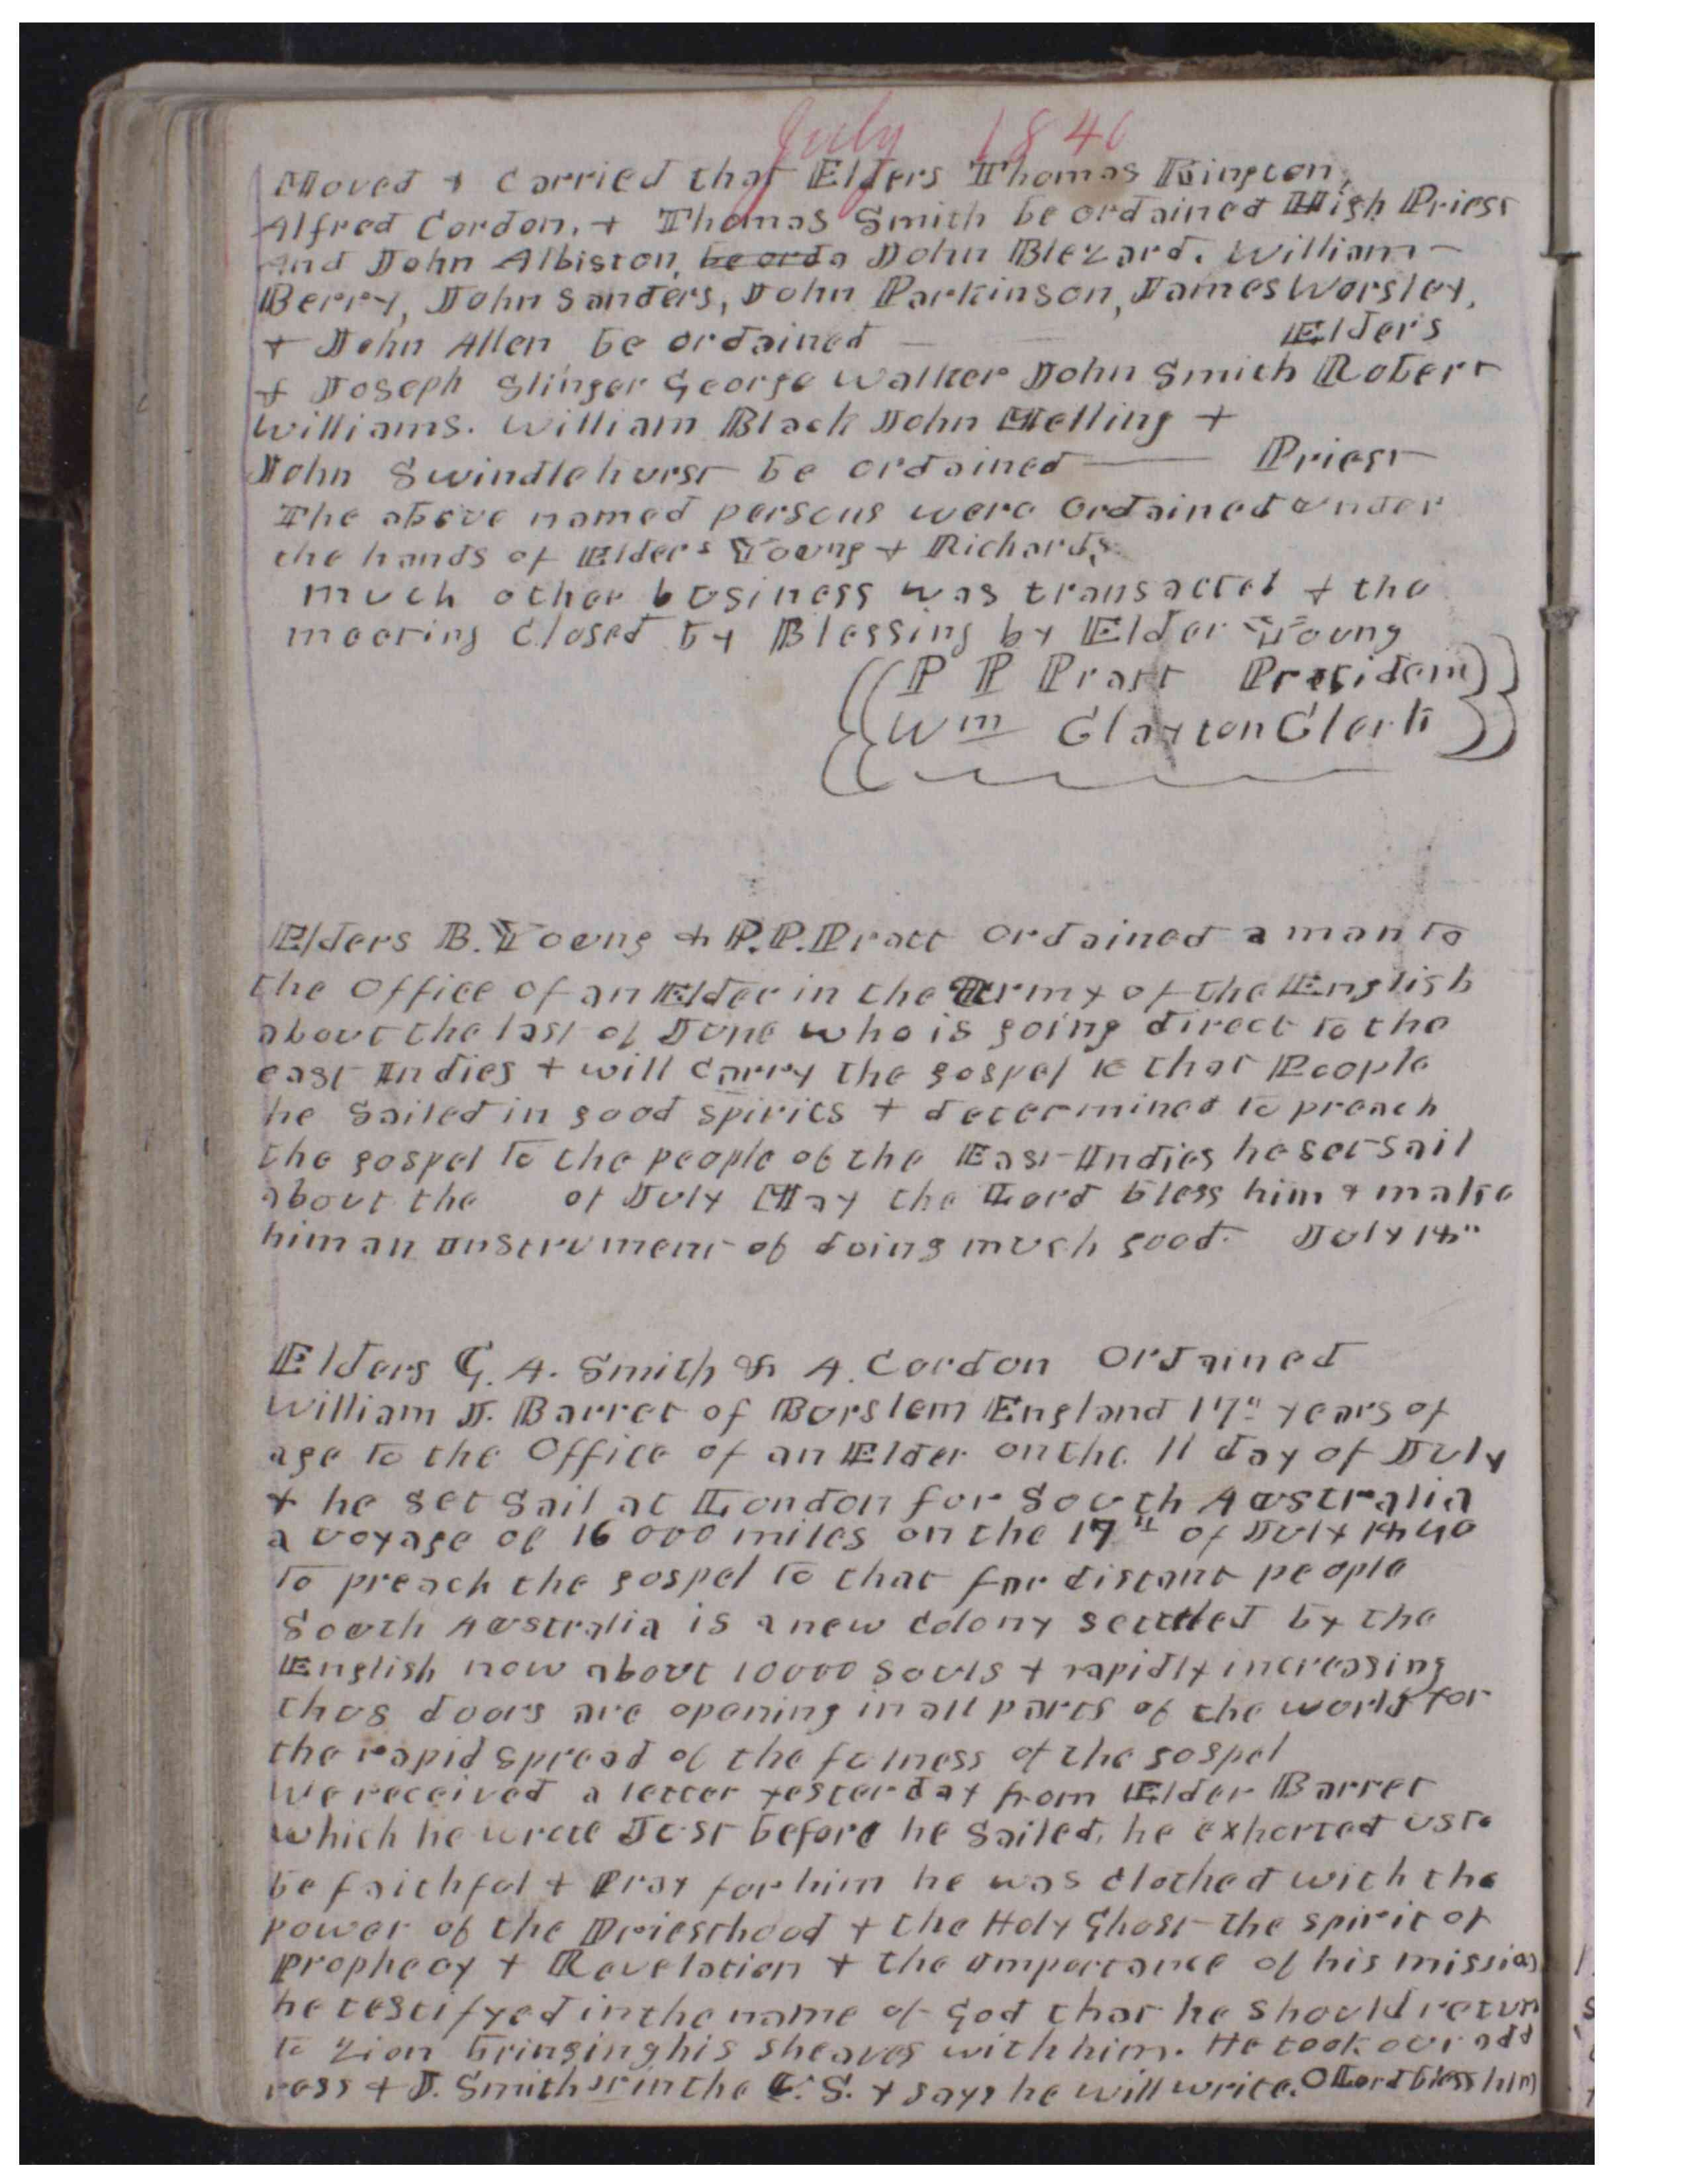 July 1840
Moved + Carried that Elders Thomas Kington,
Alfred Cordon, + Thomas Smith be ordained High Priest
And John Albiston, be orda John Blezard, William
Berry, John Sanders, John Parkinson, James Worsley,
+ John Allen be ordained — Elders
+ Joseph Slinger George Walker John Smith Robert
Williams. William Black John Melling +
John Swindlehurst be ordained — Priest
The above named persons were ordained under
the hands of Elders Young + Richards.
much other business was transacted + the
meeting Closed by Blessing by Elder Young
P P Pratt President
Wm Clayton Clerk
Elders B. Young & P.P. Pratt Ordained a man to
the Office of an Elder in the Army of the English
about the last of June who is going direct to the
east Indies + will carry the gospel to that People
he Sailed in good spirits + determined to preach
the gospel to the people of the East-Indies he set sail
about the of July May the Lord bless him & make
him an instrument of doing much good. July 18"
Elders G. A. Smith & A. Cordon Ordained
William J. Barret of Burslem England 17" years of
age to the Office of an Elder on the 11 day of July
+ he set Sail at London for South Australia
a voyage of 16000 miles on the 17th of July 1840
to preach the gospel to that far distant people
South Australia is a new Colony settled by the
English now about 10000 Souls + rapidly increasing
thus doors are opening in all parts of the world for
the rapid spread of the fulness of the gospel
We received a letter yesterday from Elder Barret
which he wrote Just before he Sailed, he exhorted us to
be faithful + Pray for him he was Clothed with the
power of the Priesthood + the Holy Ghost the spirit of
Prophecy + Revelation + the importance of his mission
he testifyed in the name of God that he should return
to Zion bringing his sheaves with him. He took our add
ress + J. Smith jr in the U.S. + says he will write. O Lord bless him